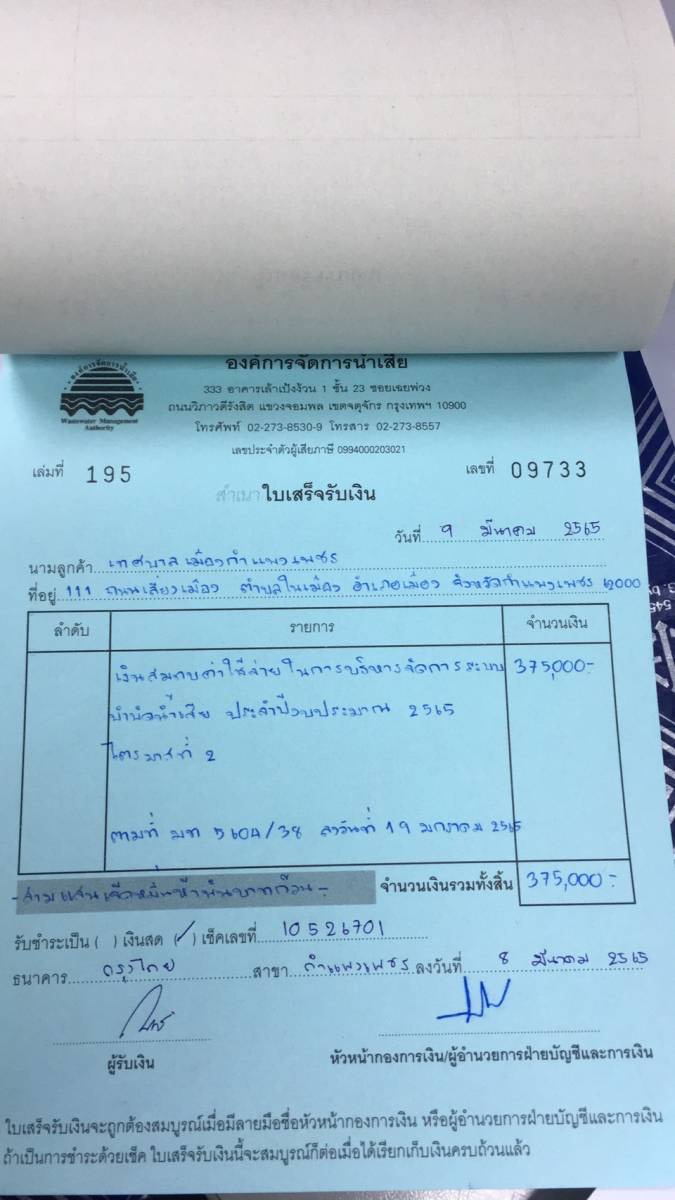 องค์การจัดการน้ำเสีย
333 อาคารเล้าเป้งง้วน 1 ชั้น 23 ซอยเฉยพ่วง
ถนนวิภาวดีรังสิต แขวงจอมพล เขตจตุจักร กรุงเทพฯ 10900
โทรศัพท์ 02-273-8530-9 โทรสาร 02-273-8557
เลขประจำตัวผู้เสียภาษี 0994000203021
องค์การจัดการน้ำเสีย
Wastewater Management
Authority
เล่มที่ 195
เลขที่ 09733
สำเนาใบเสร็จรับเงิน
วันที่ 9 มีนาคม 2565
นามลูกค้า เทศบาลเมืองกำแพงเพชร
ที่อยู่ 111 ถนนเลี่ยงเมือง ตำบลในเมือง อำเภอเมือง จังหวัดกำแพงเพชร 62000
ลำดับ รายการ จำนวนเงิน
เงินสมทบค่าใช้จ่ายในการบริหารจัดการระบบ 375,000.-
บำบัดน้ำเสีย ประจำปีงบประมาณ 2565
ไตรมาสที่ 2
ตามที่ มท 5604/38 ลงวันที่ 19 มกราคม 2565
-สามแสนเจ็ดหมื่นห้าพันบาทถ้วน- จำนวนเงินรวมทั้งสิ้น 375,000.-
รับชำระเป็น ( ) เงินสด (/) เช็คเลขที่ 10526701
ธนาคาร กรุงไทย สาขา กำแพงเพชร ลงวันที่ 8 มีนาคม 2565
ผู้รับเงิน หัวหน้ากองการเงิน/ผู้อำนวยการฝ่ายบัญชีและการเงิน
ใบเสร็จรับเงินจะถูกต้องสมบูรณ์เมื่อมีลายมือชื่อหัวหน้ากองการเงิน หรือผู้อำนวยการฝ่ายบัญชีและการเงิน
ถ้าเป็นการชำระด้วยเช็ค ใบเสร็จรับเงินนี้จะสมบูรณ์ก็ต่อเมื่อได้เรียกเก็บเงินครบถ้วนแล้ว